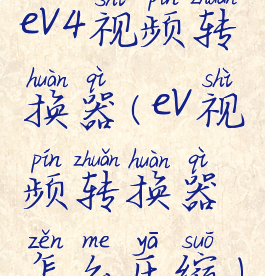 shì pín zhuǎn
eV4视频转
huàn qì shì
换器(eV视
pín zhuǎn huàn qì
频转换器
zěn me yā suō
怎么压缩)